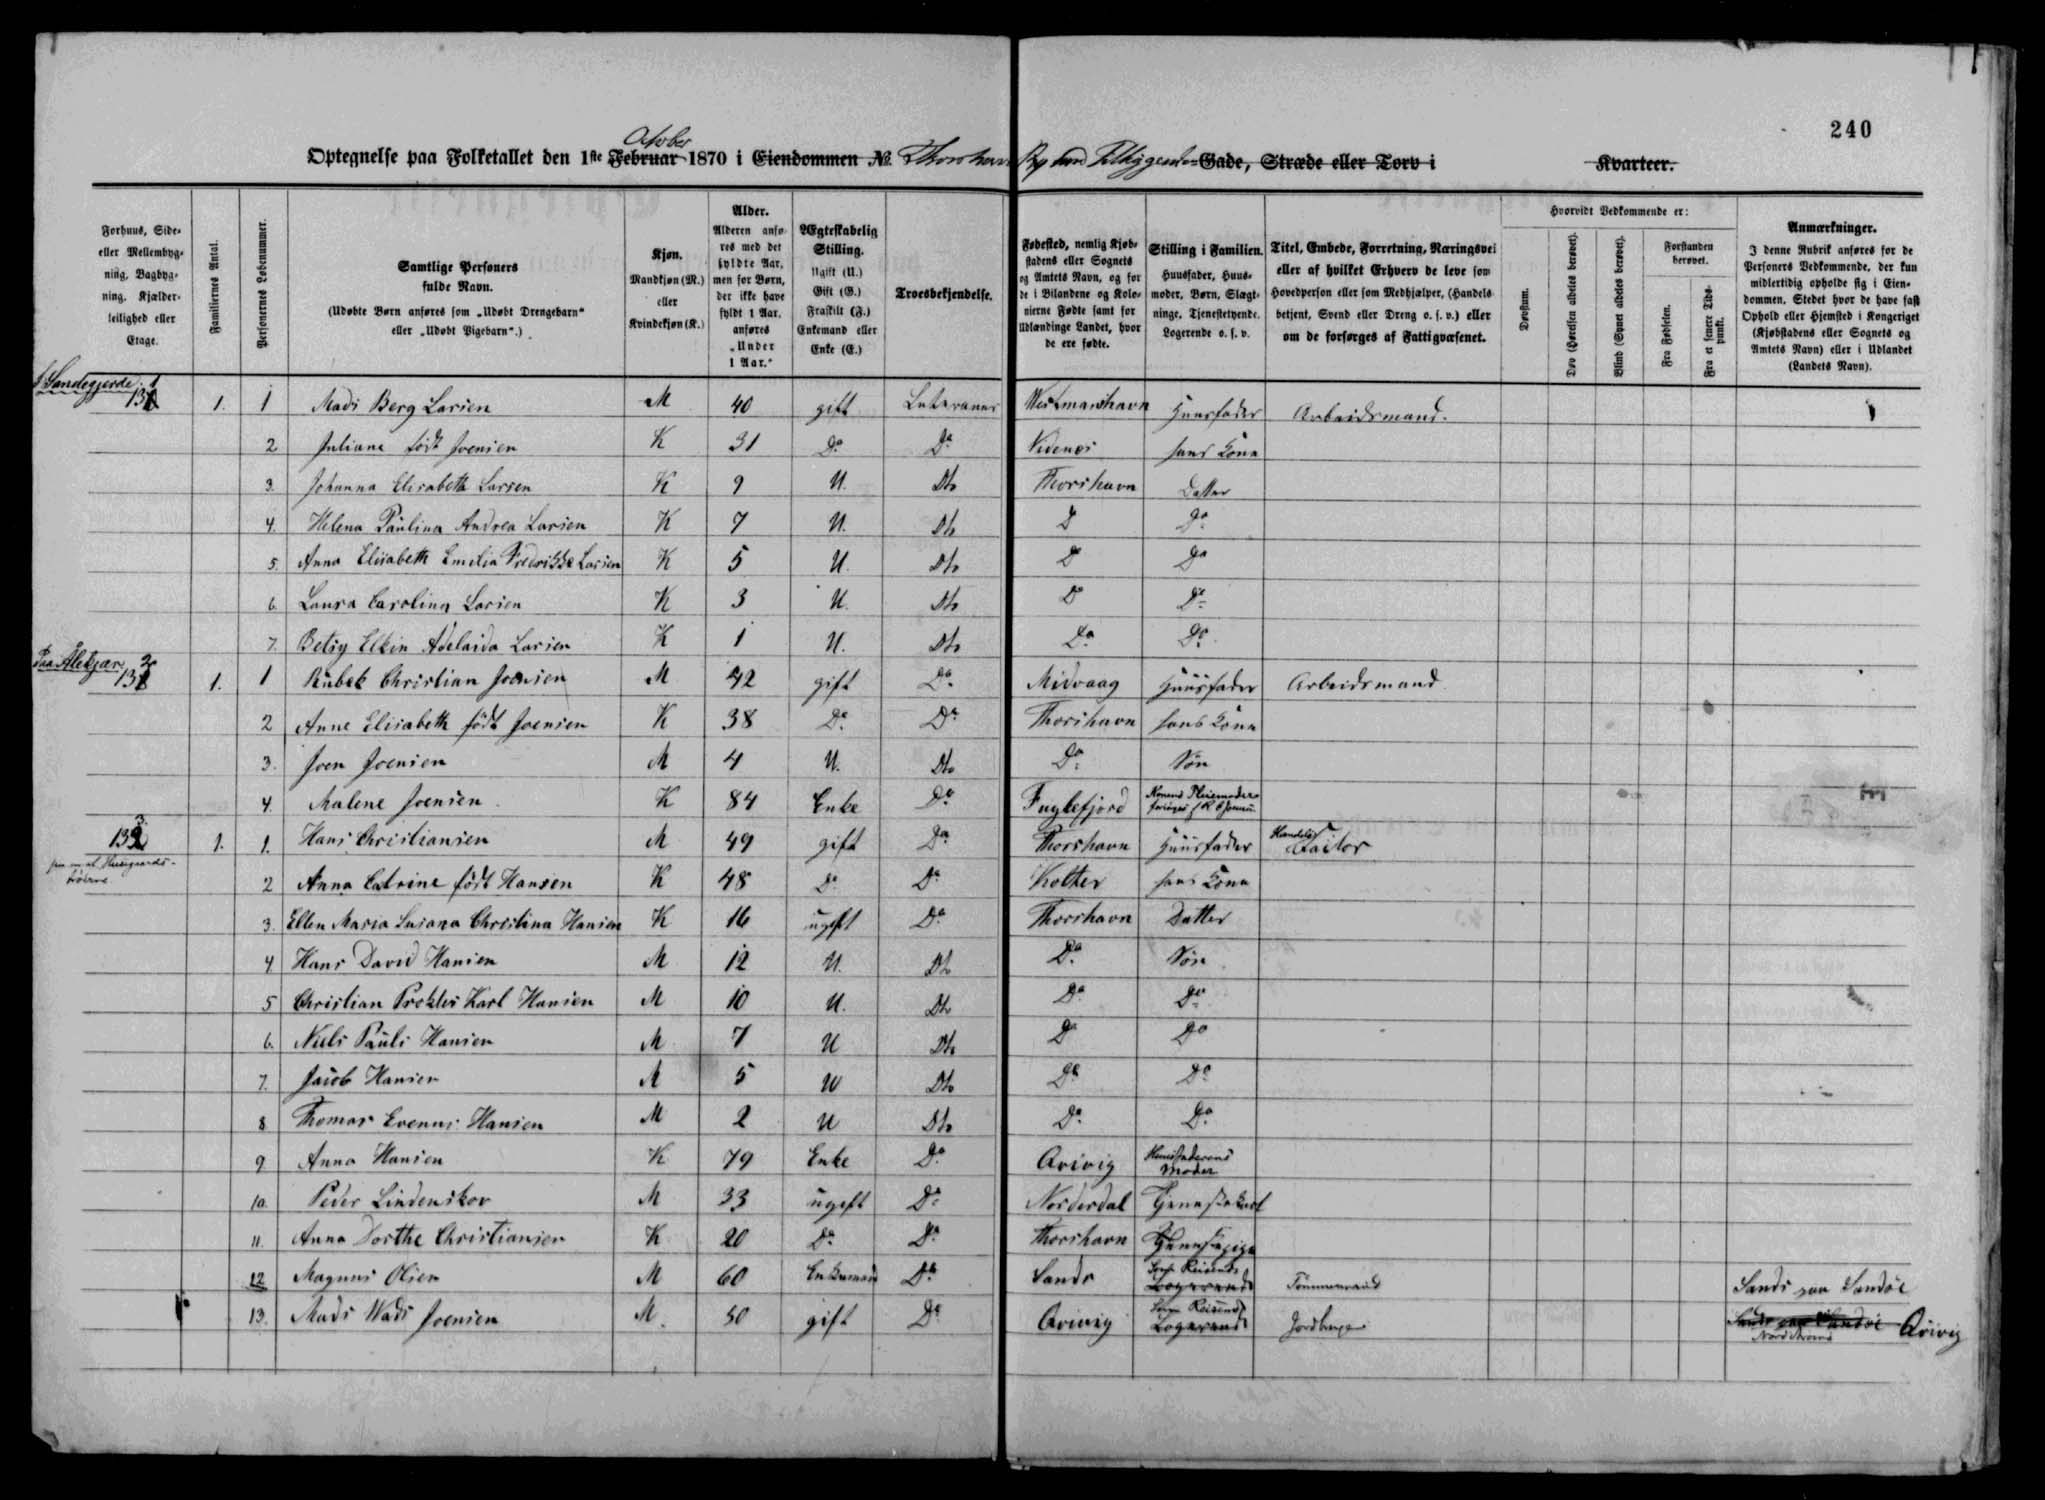 240
October
Optegnelse paa Folketallet den 1ste Februar 1870 i Eiendommen No. Thorshavn By med Gade, Stræde eller Torv i Kvarteer.
Forhuus, Side- eller Mellembygning, Bagbygning, Kjælderleilighed eller Etage.
Familiernes Antal.
Personernes Løbenummer.
Samtlige Personers fulde Navn. (Udøbte Børn anføres som „Udøbt Drengebarn“ eller „Udøbt Pigebarn“.)
Kjøn. Mandkjøn (M.) eller Kvindekjøn (K.)
Alder. Alderen anføres med det fyldte Aar, men for Børn, der ikke have fyldt 1 Aar, anføres „Under 1 Aar.“
Ægteskabelig Stilling. Ugift (U.) Gift (G.) Fraskilt (F.) Enkemand eller Enke (E.)
Troesbekjendelse.
Fødested, nemlig Kjøbstadens eller Sognets og Amtets Navn, og for de i Bilandene og Kolonierne Fødte samt for Udlændinge Landet, hvor de ere fødte.
Stilling i Familien. Huusfader, Huusmoder, Børn, Slægtninge, Tjenestetyende, Logerende o. s. v.
Titel, Embede, Forretning, Næringsvei eller af hvilket Erhverv de leve som Hovedperson eller som Medhjælper, (Handelsbetjent, Svend eller Dreng o. s. v.) eller om de forsørges af Fattigvæsenet.
Hvorvidt Vedkommende er:
Døvstum.
Døv (Hørelsen aldeles berøvet).
Blind (Synet aldeles berøvet).
Forstanden berøvet.
Fra Fødselen.
Fra et senere Tidspunkt.
Anmærkninger. I denne Rubrik anføres for de Personers Vedkommende, der kun midlertidig opholde sig i Eiendommen, Stedet hvor de have fast Ophold eller Hjemsted i Kongeriget (Kjøbstadens eller Sognets og Amtets Navn) eller i Udlandet (Landets Navn).
Sandegjerde
131 1. 1 Mads Berg Larsen M 40 gift Lutheraner Westmanshavn Huusfader Arbeidsmand.
2 Juliane født Joensen K 31 Do Do Videnæs hans Kone
3. Johanna Elisabeth Larsen K 9 U. Dto Thorshavn Datter
4. Helena Paulina Andrea Larsen K 7 U. Dto Do Do
5. Anna Elisabeth Emilia Fredrikke Larsen K 5 U. Dto Do Do
6. Laura Carolina Larsen K 3 U. Dto Do Do
7. Betsy Elkin Adelaida Larsen K 1 U. Dto Do Do
Paa Alekjær
132 1. 1 Rubek Christian Joensen M 42 gift Do Midvaag Huusfader Arbeidsmand
2 Anne Elisabeth født Joensen K 38 Do Do Thorshavn hans Kone
3. Joen Joensen M 4 U. Dto Do Søn
4. Malene Joensen K 84 Enke Do Fuglefjord Konens Pleiemoder
133 1. 1. Hans Christiansen M 49 gift Do Thorshavn Huusfader Handels
2 Anna Catrine født Hansen K 48 Do Do Kolter hans Kone
3. Ellen Maria Susana Christina Hansen K 16 ugift Do Thorshavn Datter
4. Hans David Hansen M 12 U. Dto Do Søn
5 Christian Karl Hansen M 10 U. Dto Do Do
6. Niels Pauli Hansen M 7 U Dto Do Do
7. Jacob Hansen M 5 U Dto Do Do
8 Thomas Evenus Hansen M 2 U Dto Do Do
9 Anna Hansen K 79 Enke Do Qvivig Huusfaderens Moder
10. Peder Lindenskov M 33 ugift Do Norderdal Tjenestekarl
11. Anna Dorthe Christiansen K 20 Do Do Thorshavn Tjenestepige
12 Magnus Olsen M 60 Enkemand Do Sands Reisende Logerende Tømmermand Sands paa Sandøe
13. Mads Wads Joensen M. 50 gift Do Qvivig Reisende Logerende Jordbruger Sands paa Sandøe Qvivig